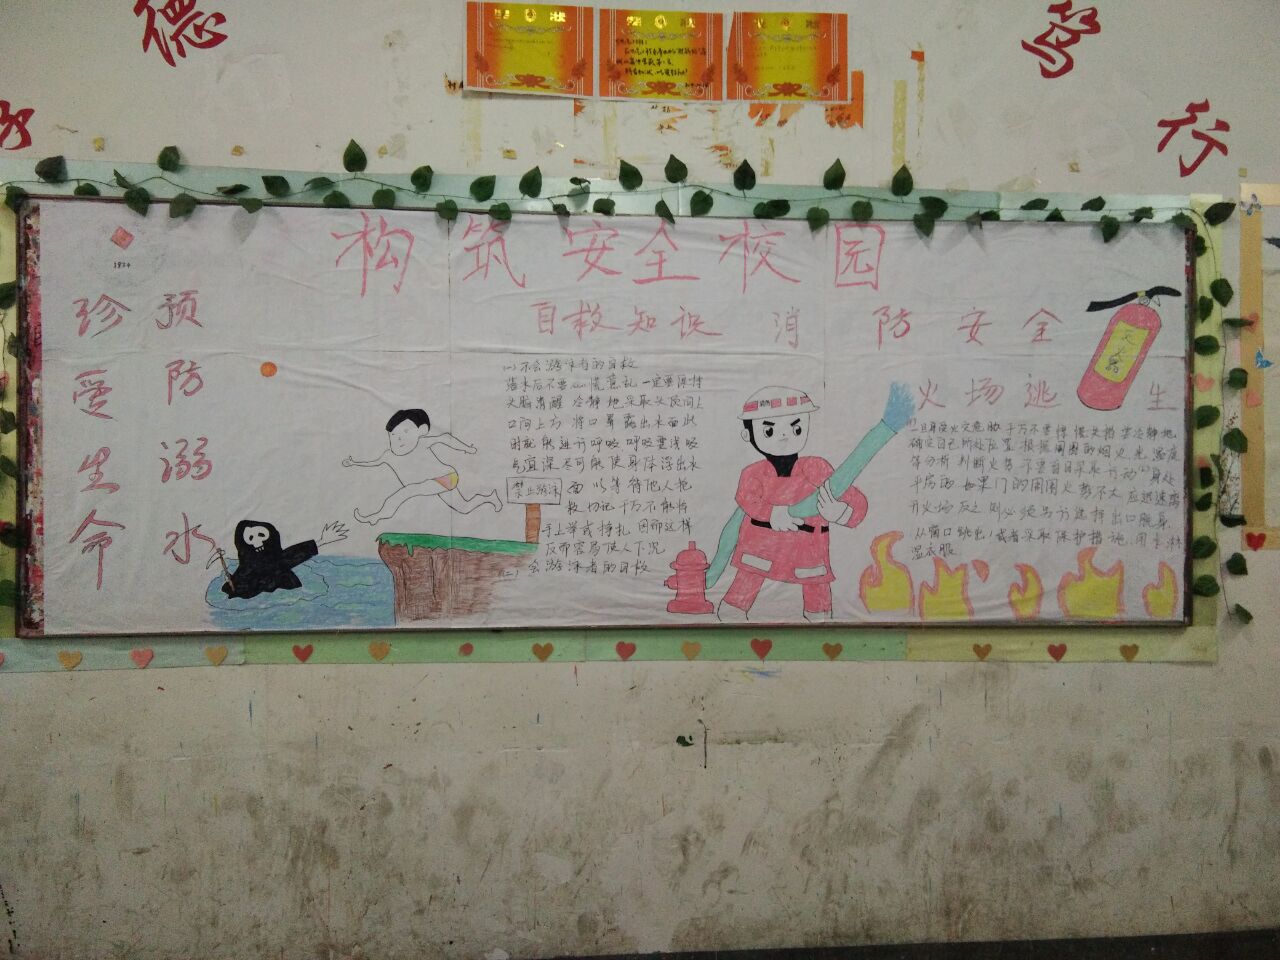 德
笃
行
奖 状
构筑安全校园
1924
自救知识 消防安全
珍爱生命
预防溺水
火场逃生
灭火器
禁止游泳
(一)不会游泳者的自救
落水后不要心慌意乱 一定要保持
头脑清醒 冷静地采取头顶向上
口向上方 将口鼻露出水面 此
时就能进行呼吸 呼吸要浅 吸
气宜深 尽可能使身体浮出水
面 以等待他人抢
救 切记千万不能将
手上举或挣扎 因那这样
反而容易使人下沉
(二) 会游泳者的自救
一旦身受火灾危胁 千万不要惊慌失措 要冷静地
确定自己所处位置 根据周围的烟火光温度
等分析判断火势 不要盲目采取行动 身处
平房的 如果门的周围火势不大 应迅速离
开火场 反之 则必须另行选择出口脱身
(从窗口跳出)或者采取保护措施 用水淋
湿衣服